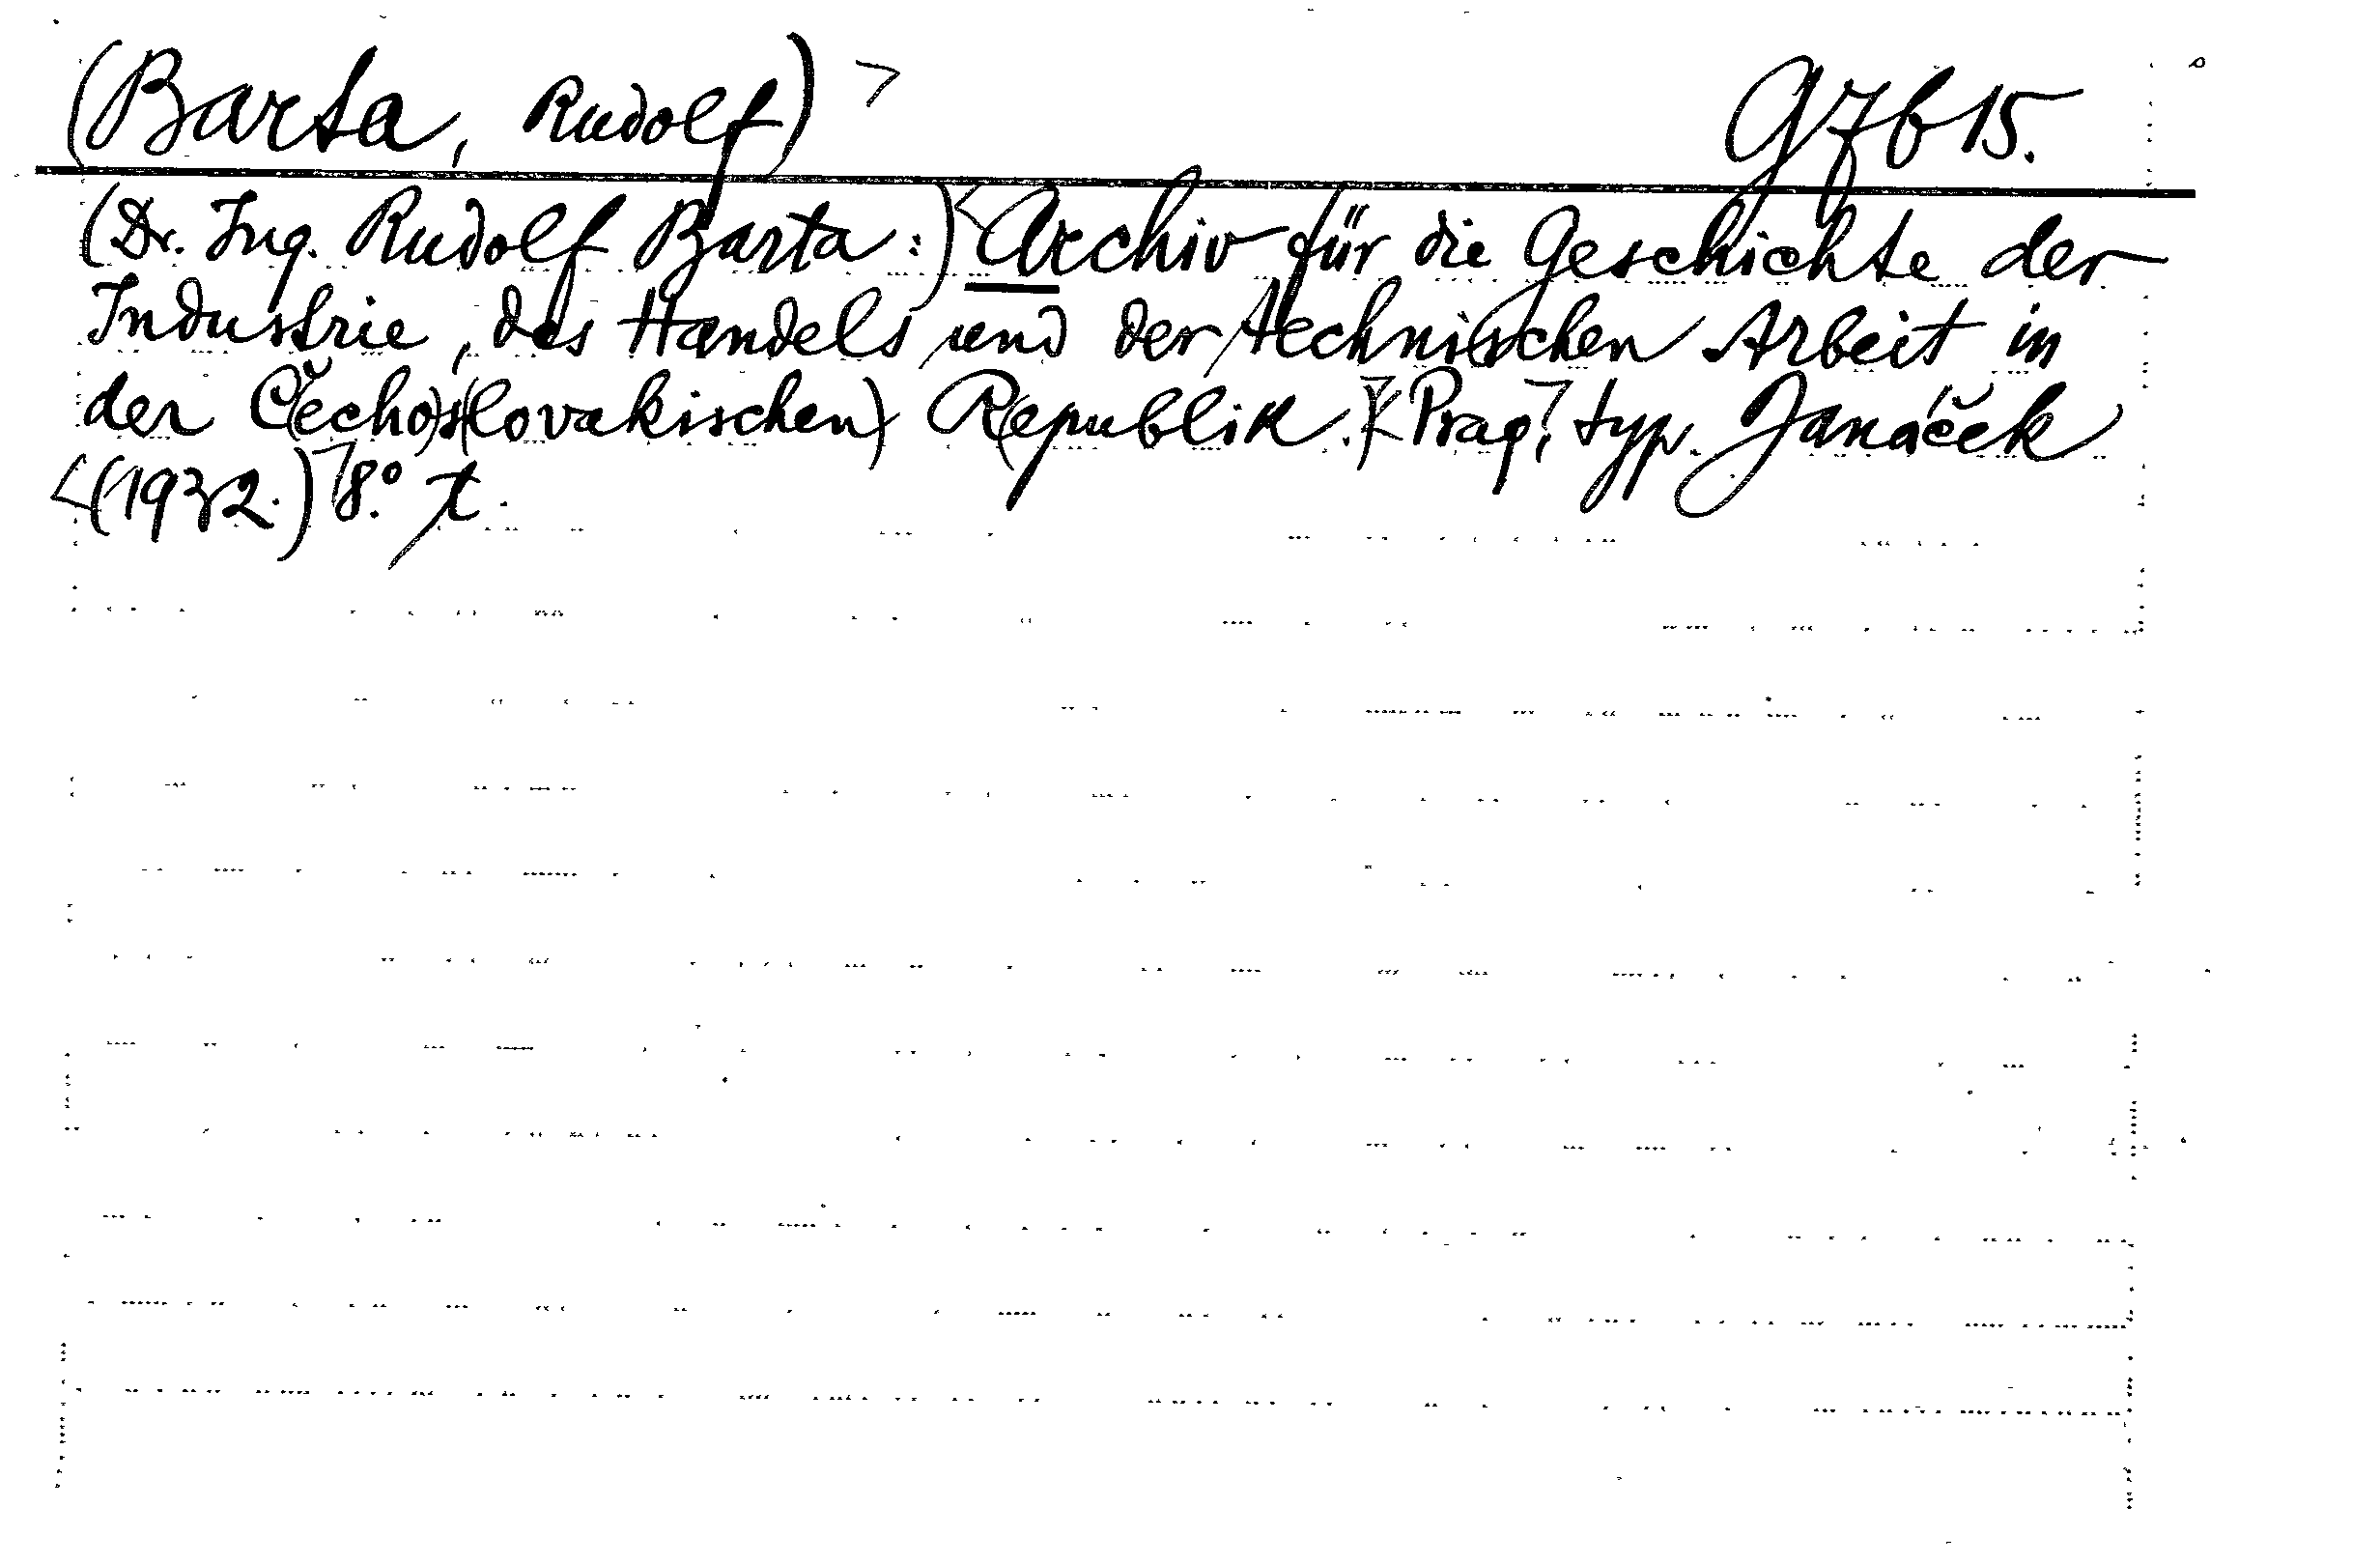 (Barta, Rudolf) G7b15.
(Dr. Ing. Rudolf Barta:) Archiv für die Geschichte der
Industrie, des Handels und der technischen Arbeit in
der Č(echo)s(lovakischen) R(epublik.) (Prag), typ. Janáček
(1932.) 8.° t.